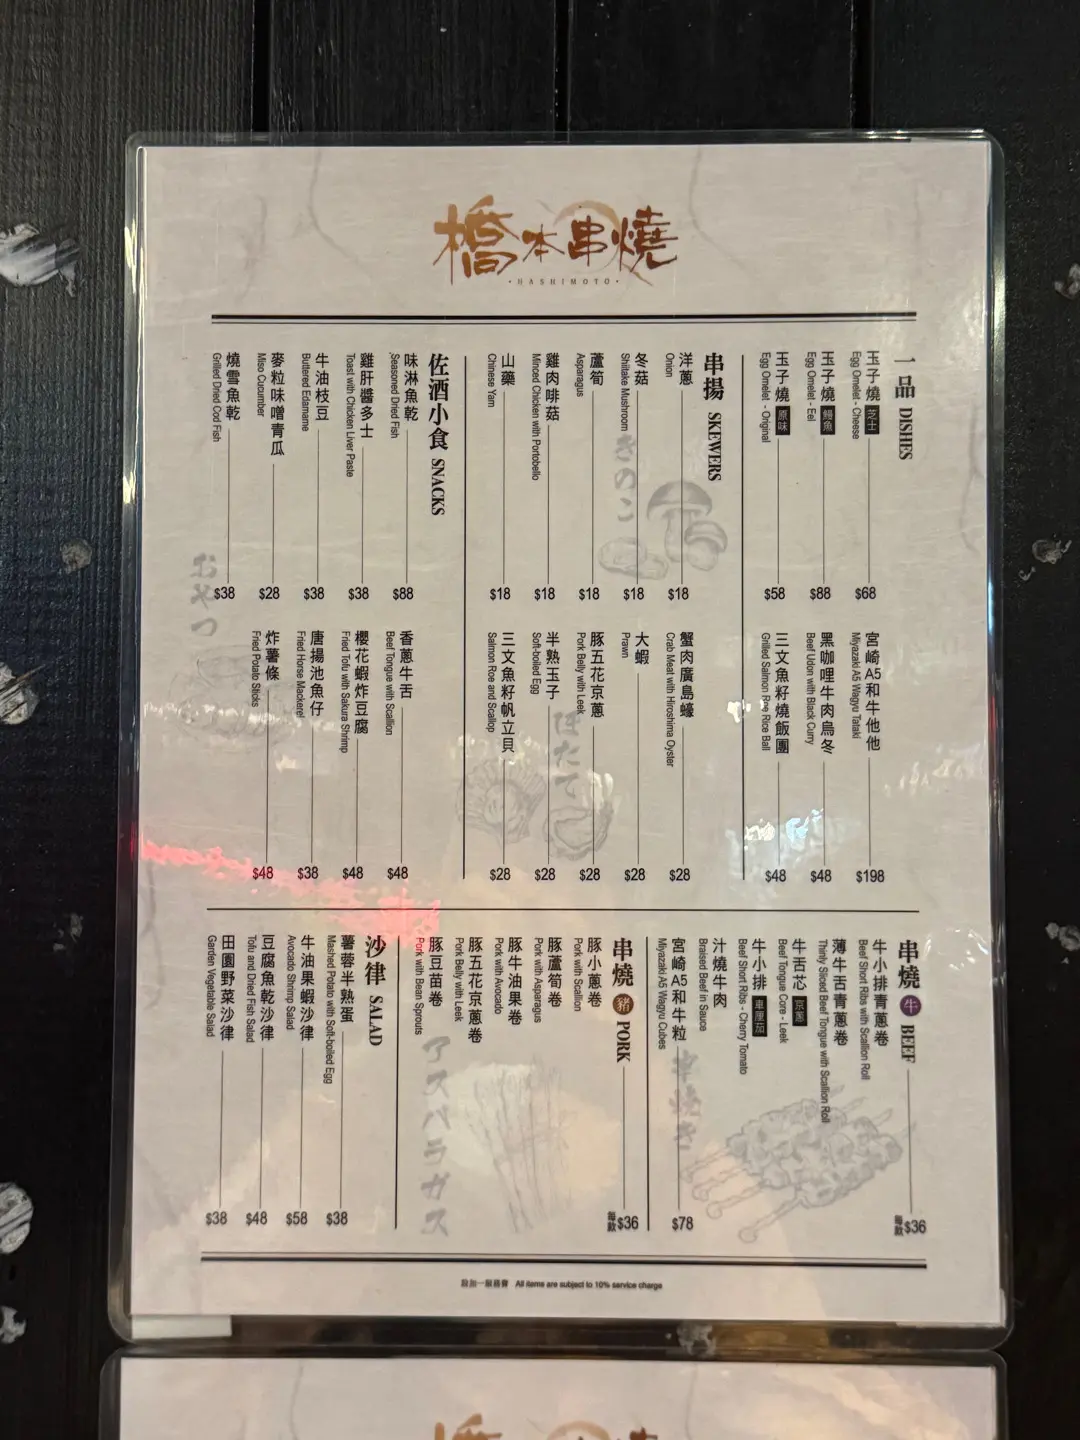 橋本串燒
·HASHIMOTO·
一品 DISHES
玉子燒 芝士 $68
Egg Omelet - Cheese
玉子燒 鰻魚 $88
Egg Omelet - Eel
玉子燒 原味 $58
Egg Omelet - Original
宮崎A5和牛他他 $198
Miyazaki A5 Wagyu Tataki
黑咖哩牛肉烏冬 $48
Beef Udon with Black Curry
三文魚籽燒飯團 $48
Grilled Salmon Roe Rice Ball
串揚 SKEWERS
洋蔥 $18
Onion
冬菇 $18
Shiitake Mushroom
蘆筍 $18
Asparagus
雞肉啡菇 $18
Minced Chicken with Portobello
山藥 $18
Chinese Yam
きのこ
蟹肉廣島蠔 $28
Crab Meat with Hiroshima Oyster
大蝦 $28
Prawn
豚五花京蔥 $28
Pork Belly with Leek
半熟玉子 $28
Soft-boiled Egg
三文魚籽帆立貝 $28
Salmon Roe and Scallop
ほたて
佐酒小食 SNACKS
味淋魚乾 $88
Seasoned Dried Fish
雞肝醬多士 $38
Toast with Chicken Liver Paste
牛油枝豆 $38
Buttered Edamame
麥粒味噌青瓜 $28
Miso Cucumber
燒雪魚乾 $38
Grilled Dried Cod Fish
おやつ
香蔥牛舌 $48
Beef Tongue with Scallion
櫻花蝦炸豆腐 $48
Fried Tofu with Sakura Shrimp
唐揚池魚仔 $38
Fried Horse Mackerel
炸薯條 $48
Fried Potato Sticks
串燒 牛 BEEF 每款 $36
牛小排青蔥卷
Beef Short Ribs with Scallion Roll
薄牛舌青蔥卷
Thinly Sliced Beef Tongue with Scallion Roll
牛舌芯 京蔥
Beef Tongue Core - Leek
牛小排 車厘茄
Beef Short Ribs - Cherry Tomato
汁燒牛肉
Braised Beef in Sauce
宮崎A5和牛粒 $78
Miyazaki A5 Wagyu Cubes
串焼き
串燒 豬 PORK 每款 $36
豚小蔥卷
Pork with Scallion
豚蘆筍卷
Pork with Asparagus
豚牛油果卷
Pork with Avocado
豚五花京蔥卷
Pork Belly with Leek
豚豆苗卷
Pork with Bean Sprouts
アスパラガス
沙律 SALAD
薯蓉半熟蛋 $38
Mashed Potato with Soft-boiled Egg
牛油果蝦沙律 $58
Avocado Shrimp Salad
豆腐魚乾沙律 $48
Tofu and Dried Fish Salad
田園野菜沙律 $38
Garden Vegetable Salad
設加一服務費 All items are subject to 10% service charge